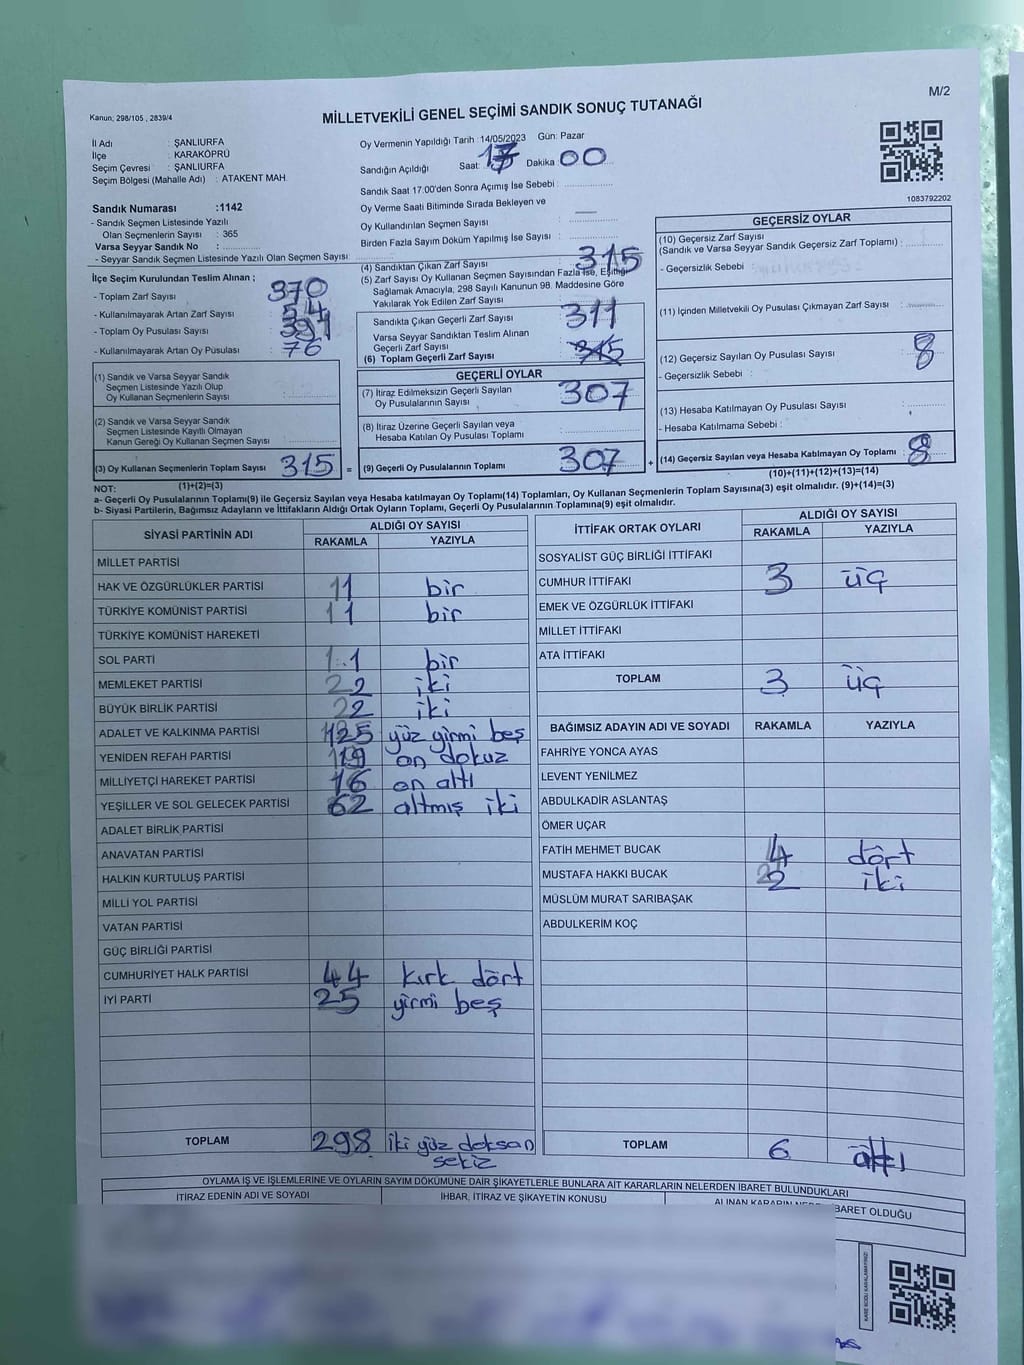 M/2
Kanun; 298/105 , 2839/4
MİLLETVEKİLİ GENEL SEÇİMİ SANDIK SONUÇ TUTANAĞI
İl Adı : ŞANLIURFA
İlçe : KARAKÖPRÜ
Seçim Çevresi : ŞANLIURFA
Seçim Bölgesi (Mahalle Adı) : ATAKENT MAH.
Sandık Numarası :1142
- Sandık Seçmen Listesinde Yazılı
Olan Seçmenlerin Sayısı : 365
Varsa Seyyar Sandık No :
- Seyyar Sandık Seçmen Listesinde Yazılı Olan Seçmen Sayısı :
Oy Vermenin Yapıldığı Tarih :14/05/2023 Gün: Pazar
Sandığın Açıldığı Saat: Dakika 00
Sandık Saat 17.00'den Sonra Açımış İse Sebebi :
Oy Verme Saati Bitiminde Sırada Bekleyen ve
Oy Kullandırılan Seçmen Sayısı :
Birden Fazla Sayım Döküm Yapılmış İse Sayısı :
1083792202
İlçe Seçim Kurulundan Teslim Alınan ;
- Toplam Zarf Sayısı : 370
- Kullanılmayarak Artan Zarf Sayısı : 54
- Toplam Oy Pusulası Sayısı : 391
- Kullanılmayarak Artan Oy Pusulası : 76
(1) Sandık ve Varsa Seyyar Sandık
Seçmen Listesinde Yazılı Olup
Oy Kullanan Seçmenlerin Sayısı :
(2) Sandık ve Varsa Seyyar Sandık
Seçmen Listesinde Kayıtlı Olmayan
Kanun Gereği Oy Kullanan Seçmen Sayısı :
(3) Oy Kullanan Seçmenlerin Toplam Sayısı : 315 =
(4) Sandıktan Çıkan Zarf Sayısı : 315
(5) Zarf Sayısı Oy Kullanan Seçmen Sayısından Fazla İse, Eşitliği
Sağlamak Amacıyla, 298 Sayılı Kanunun 98. Maddesine Göre
Yakılarak Yok Edilen Zarf Sayısı :
Sandıkta Çıkan Geçerli Zarf Sayısı : 311
Varsa Seyyar Sandıktan Teslim Alınan
Geçerli Zarf Sayısı :
(6) Toplam Geçerli Zarf Sayısı : 315
GEÇERLİ OYLAR
(7) İtiraz Edilmeksizin Geçerli Sayılan
Oy Pusulalarının Sayısı : 307
(8) İtiraz Üzerine Geçerli Sayılan veya
Hesaba Katılan Oy Pusulası Toplamı :
(9) Geçerli Oy Pusulalarının Toplamı : 307 +
GEÇERSİZ OYLAR
(10) Geçersiz Zarf Sayısı
(Sandık ve Varsa Seyyar Sandık Geçersiz Zarf Toplamı) :
- Geçersizlik Sebebi :
(11) İçinden Milletvekili Oy Pusulası Çıkmayan Zarf Sayısı :
(12) Geçersiz Sayılan Oy Pusulası Sayısı : 8
- Geçersizlik Sebebi :
(13) Hesaba Katılmayan Oy Pusulası Sayısı :
- Hesaba Katılmama Sebebi :
(14) Geçersiz Sayılan veya Hesaba Katılmayan Oy Toplamı : 8
(1)+(2)=(3)
(10)+(11)+(12)+(13)=(14)
NOT:
a- Geçerli Oy Pusulalarının Toplamı(9) ile Geçersiz Sayılan veya Hesaba katılmayan Oy Toplamı(14) Toplamları, Oy Kullanan Seçmenlerin Toplam Sayısına(3) eşit olmalıdır. (9)+(14)=(3)
b- Siyasi Partilerin, Bağımsız Adayların ve İttifakların Aldığı Ortak Oyların Toplamı, Geçerli Oy Pusulalarının Toplamına(9) eşit olmalıdır.
SİYASİ PARTİNİN ADI ALDIĞI OY SAYISI
RAKAMLA YAZIYLA
MİLLET PARTİSİ
HAK VE ÖZGÜRLÜKLER PARTİSİ 1 bir
TÜRKİYE KOMÜNİST PARTİSİ 1 bir
TÜRKİYE KOMÜNİST HAREKETİ
SOL PARTİ 1 bir
MEMLEKET PARTİSİ 2 iki
BÜYÜK BİRLİK PARTİSİ 2 iki
ADALET VE KALKINMA PARTİSİ 125 yüz yirmi beş
YENİDEN REFAH PARTİSİ 19 on dokuz
MİLLİYETÇİ HAREKET PARTİSİ 16 on altı
YEŞİLLER VE SOL GELECEK PARTİSİ 62 altmış iki
ADALET BİRLİK PARTİSİ
ANAVATAN PARTİSİ
HALKIN KURTULUŞ PARTİSİ
MİLLİ YOL PARTİSİ
VATAN PARTİSİ
GÜÇ BİRLİĞİ PARTİSİ
CUMHURİYET HALK PARTİSİ 44 kırk dört
İYİ PARTİ 25 yirmi beş
TOPLAM 298 iki yüz doksan
sekiz
İTTİFAK ORTAK OYLARI ALDIĞI OY SAYISI
RAKAMLA YAZIYLA
SOSYALİST GÜÇ BİRLİĞİ İTTİFAKI
CUMHUR İTTİFAKI 3 üç
EMEK VE ÖZGÜRLÜK İTTİFAKI
MİLLET İTTİFAKI
ATA İTTİFAKI
TOPLAM 3 üç
BAĞIMSIZ ADAYIN ADI VE SOYADI RAKAMLA YAZIYLA
FAHRİYE YONCA AYAS
LEVENT YENİLMEZ
ABDULKADİR ASLANTAŞ
ÖMER UÇAR
FATİH MEHMET BUCAK 4 dört
MUSTAFA HAKKI BUCAK 2 iki
MÜSLÜM MURAT SARIBAŞAK
ABDULKERİM KOÇ
TOPLAM 6 altı
OYLAMA İŞ VE İŞLEMLERİNE VE OYLARIN SAYIM DÖKÜMÜNE DAİR ŞİKAYETLERLE BUNLARA AİT KARARLARIN NELERDEN İBARET BULUNDUKLARI
İTİRAZ EDENİN ADI VE SOYADI
İHBAR, İTİRAZ VE ŞİKAYETİN KONUSU
ALINAN KARARIN BARET OLDUĞU
KARE KODU KARALAMAYINIZ!